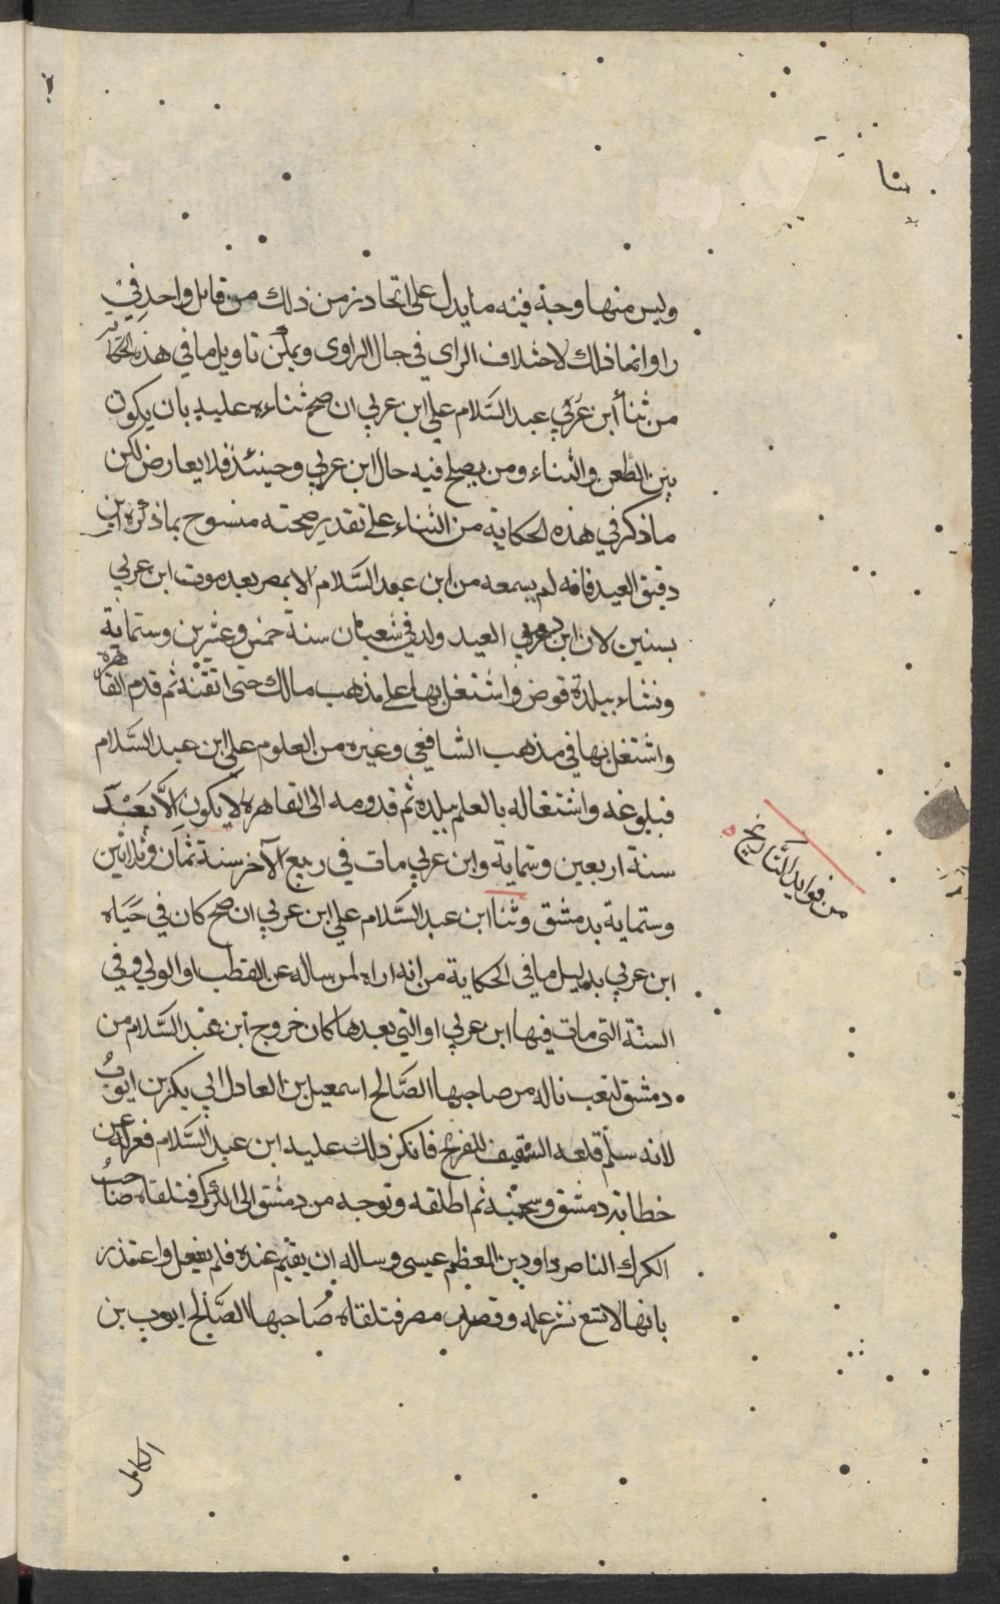 وليس منها وجه فيه ما يدل على اتحاد زمن ذلك من قايل واحد في
راو انما ذلك لاختلاف الراي في حال الراوى ويمكن تاويل ما في هذه الحكاية
من ثنا أبن عَرَبي عبد السَّلام علي ابن عربي ان صح ثناءه عليه بان يكون
بين الطعن والثناء ومن يصلح فيه حال ابن عربي وحينئذ فلا يعارض لكن
ما ذكر في هذه الحكاية من الثناء على تقدير صحته منسوخ بما ذكره ابن
دقيق العيد فانه لم يسمعه من ابن عبد السَّلام الا بمصر بعد موت ابن عربي
بسنين لان ابن عربي العيد ولد في شعبان سنة خمس وعشرين وستماية
ونشاء ببلدة قوص واشتغل بها على مذهب مالك حتى اتقنه ثم قدم القاهرة
واشتغل بها في مذهب الشافعي وغيره من العلوم على ابن عبد السَّلام
فبلوغه واشتغاله بالعلم ببلده ثم قدومه الى القاهرة لا يكون الَّا بَعْدَ
سنة اربعين وستماية وابن عربي مات في ربيع الآخر سنة ثمان وثلاثين
وستماية بدمشق وثنا ابن عبد السَّلام علي ابن عربي ان صح كان في حَيَاه
ابن عربي بدليل ما في الحكاية من انه اراه لمن ساله عن القطب او الولي وفي
السنة التى مات فيها ابن عربي او التي بعدها كان خروج ابن عبد السَّلام من
دمشق لتعب ناله من صاحبها الصَّالح اسمعيل بن العادل ابي بكر بن ايوبُ
لانه سلَّم قلعه الشقيف للفرنج فانكر ذلك عليه ابن عبد السَّلام فعزله عن
خطابة دمشق وسجنه ثم اطلقه وتوجه من دمشق الى الكرك فتلقاه صَاحبُ
الكرك الناصر داود بن المعظم عيسى وساله ان يقيم عنده فلم يفعل واعتذر
بانها لا تسع نشر علمه وقصد مصر فتلقاه صَاحبها الصَّالح ايوب بن
من فوايد التَّاريخ
الكامل